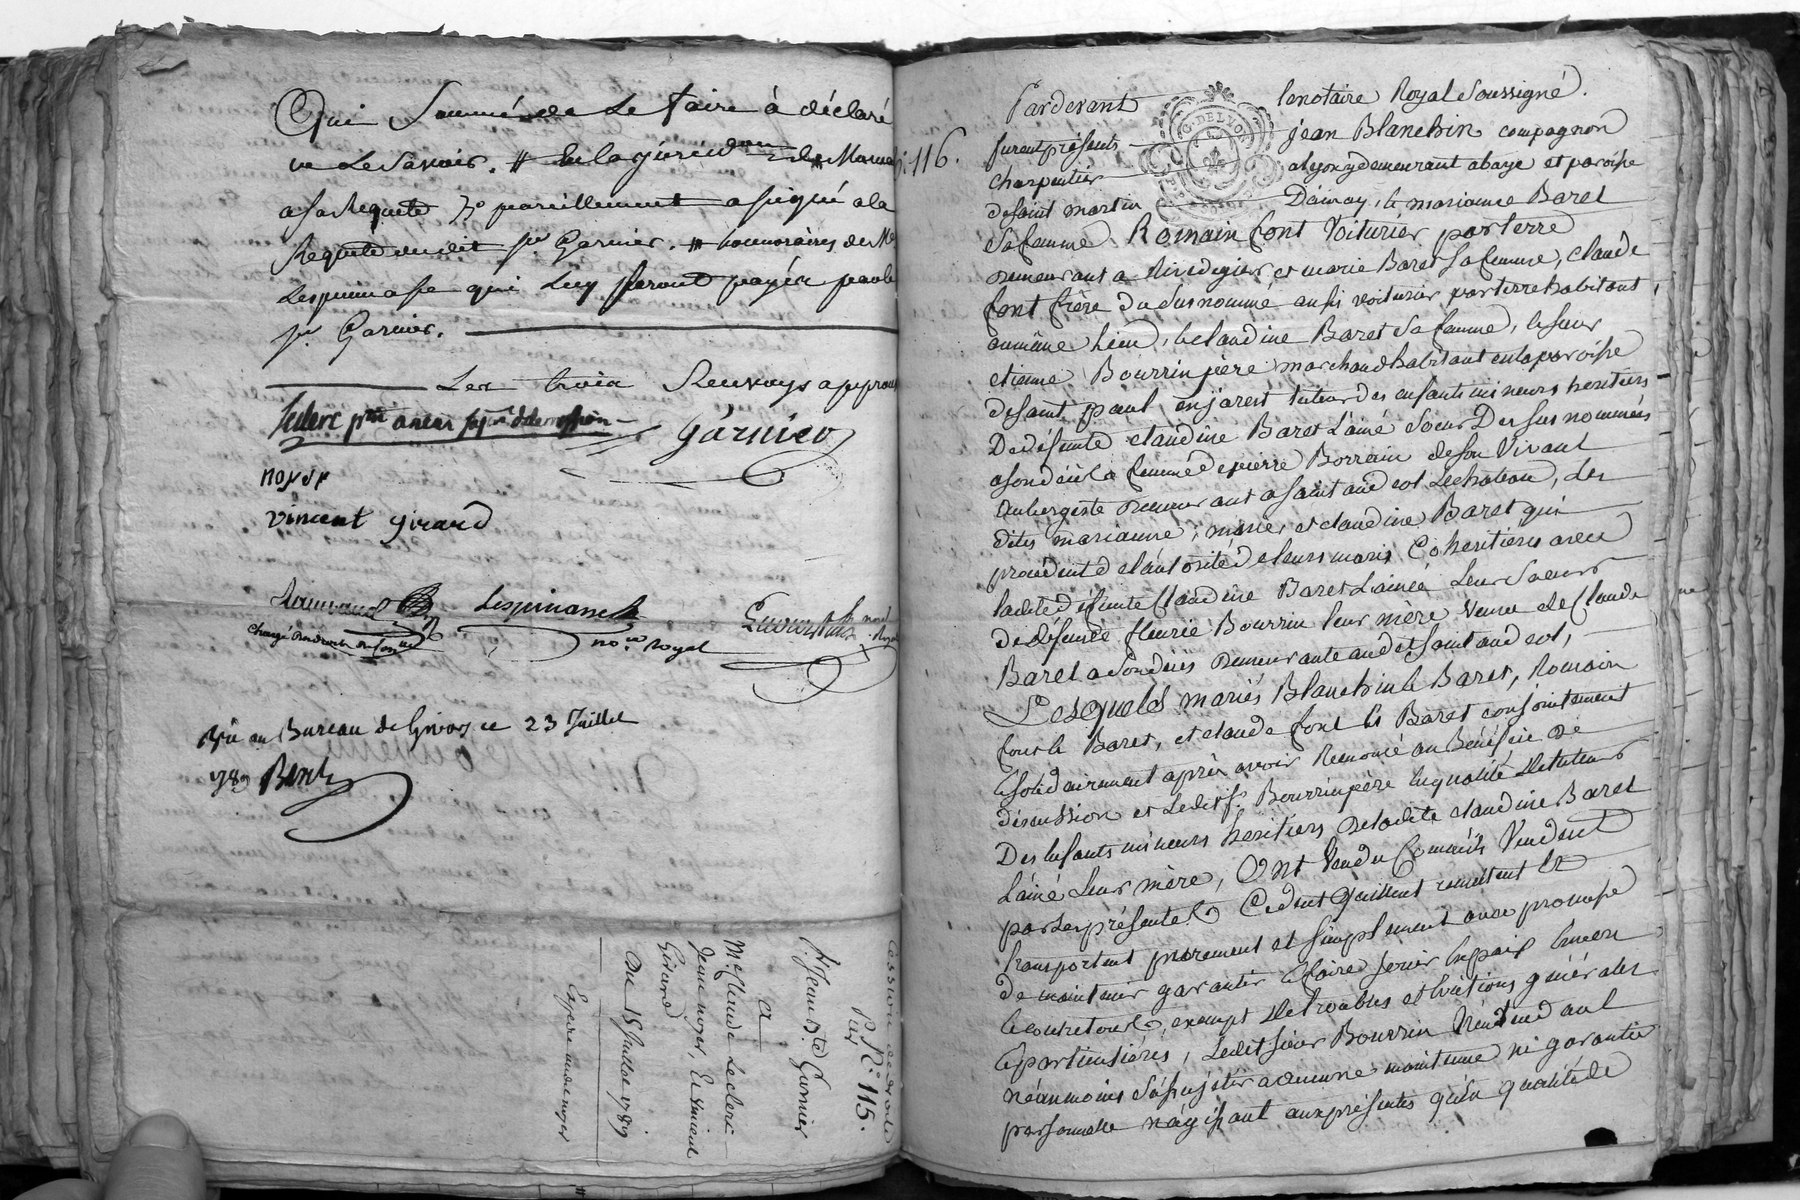 Qui Sommé de Le faire à déclaré
ne Le Savoir. # En la jurisd.on de Mornan
a Sa Requete # pareillement assigné a la
Requete dudit Sr Garnier. # honnoraires de Me
Lespinasse qui Luy Seront payés par le
Sr Garnier.
Les trois Renvoys approuv
Leclerc ptre ancien
Garnier
noyer
vincent girard
Lespinasse
nore royal
Vu au Bureau de Givors ce 23 Juillet
1789
Cession de droits
Par
N.° 115.
S. Jean Bte Garnier
a
Me Claude Leclerc
Jean noyer, Et vincent
Girard
Du 15 Juillet 1789
Expediée audit noyer
N. 116.
Pardevant le notaire Royal Soussigné.
furent présents jean Blanchin compagnon
G. DE LYON
charpentier a lyon y demeurant abaye et paroisse
de Saint martin D'ainay, & marianne Baret
Sa femme. Romain font Voiturier par terre
demeurant a Rivedegier et marie Baret Sa femme, claude
font frère du Susnommé aussi voiturier par terre habitant
au même Lieu, & claudine Baret Sa femme, le sieur
etienne Bourrin père marchand habitant en la paroisse
de saint paul en jarest tuteur des enfants mineurs heritiers
De défunte claudine Baret L'ainé Soeur Des Sus nommées
a son décès femme de pierre Bourrin de son Vivant
aubergiste demeurant a saint andeol Le chateau, Les
dites marianne, marie et claudine Baret qui
procedent de l'autorité de leurs maris Coheritières avec
ladite défunte Claudine Baret L'ainée Leur Soeur
de défunte fleurie Bourrin leur mère veuve de Claude
Baret a Son décès demeurante audit saint andeol,
Lesquels mariés Blanchin & Baret, Romain
font & Baret, et claude font & Baret conjointement
& solidairement après avoir Renoncé au Bénéfice de
discussion et Ledit Sr. Bourrin père En qualité de tuteur
Des Enfants mineurs heritiers de ladite claudine Baret
L'ainé Leur mère, Ont Vendu Comme ils Vendent
par Les présentes Cedent quittent remettent Et
transportent purement et simplement avec promesse
de maintenir garantir & faire jouir En paix Envers
& contre tous, exempt de troubles et Evictions générales
& particulières, Ledit sieur Bourrin N'entendant
néanmoins S'assujetir a aucune maintenue ni garantie
personnelle n'agissant aux présentes qu'en qualité de